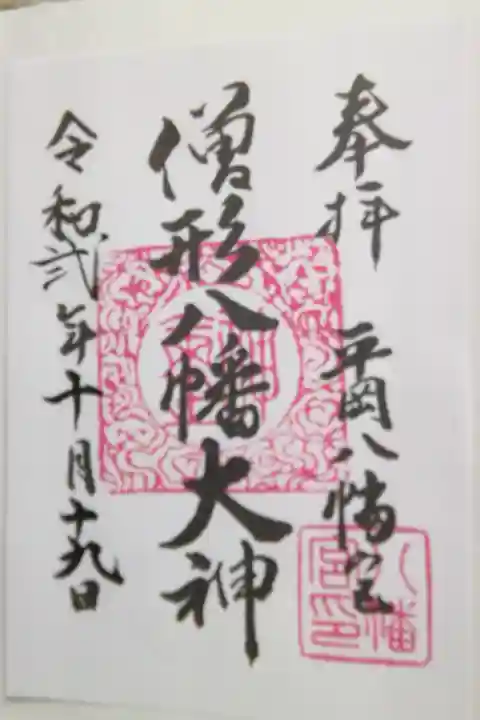 奉拝 平岡八幡宮
僧形八幡大神
令和弐年十月十九日
八幡
宮印